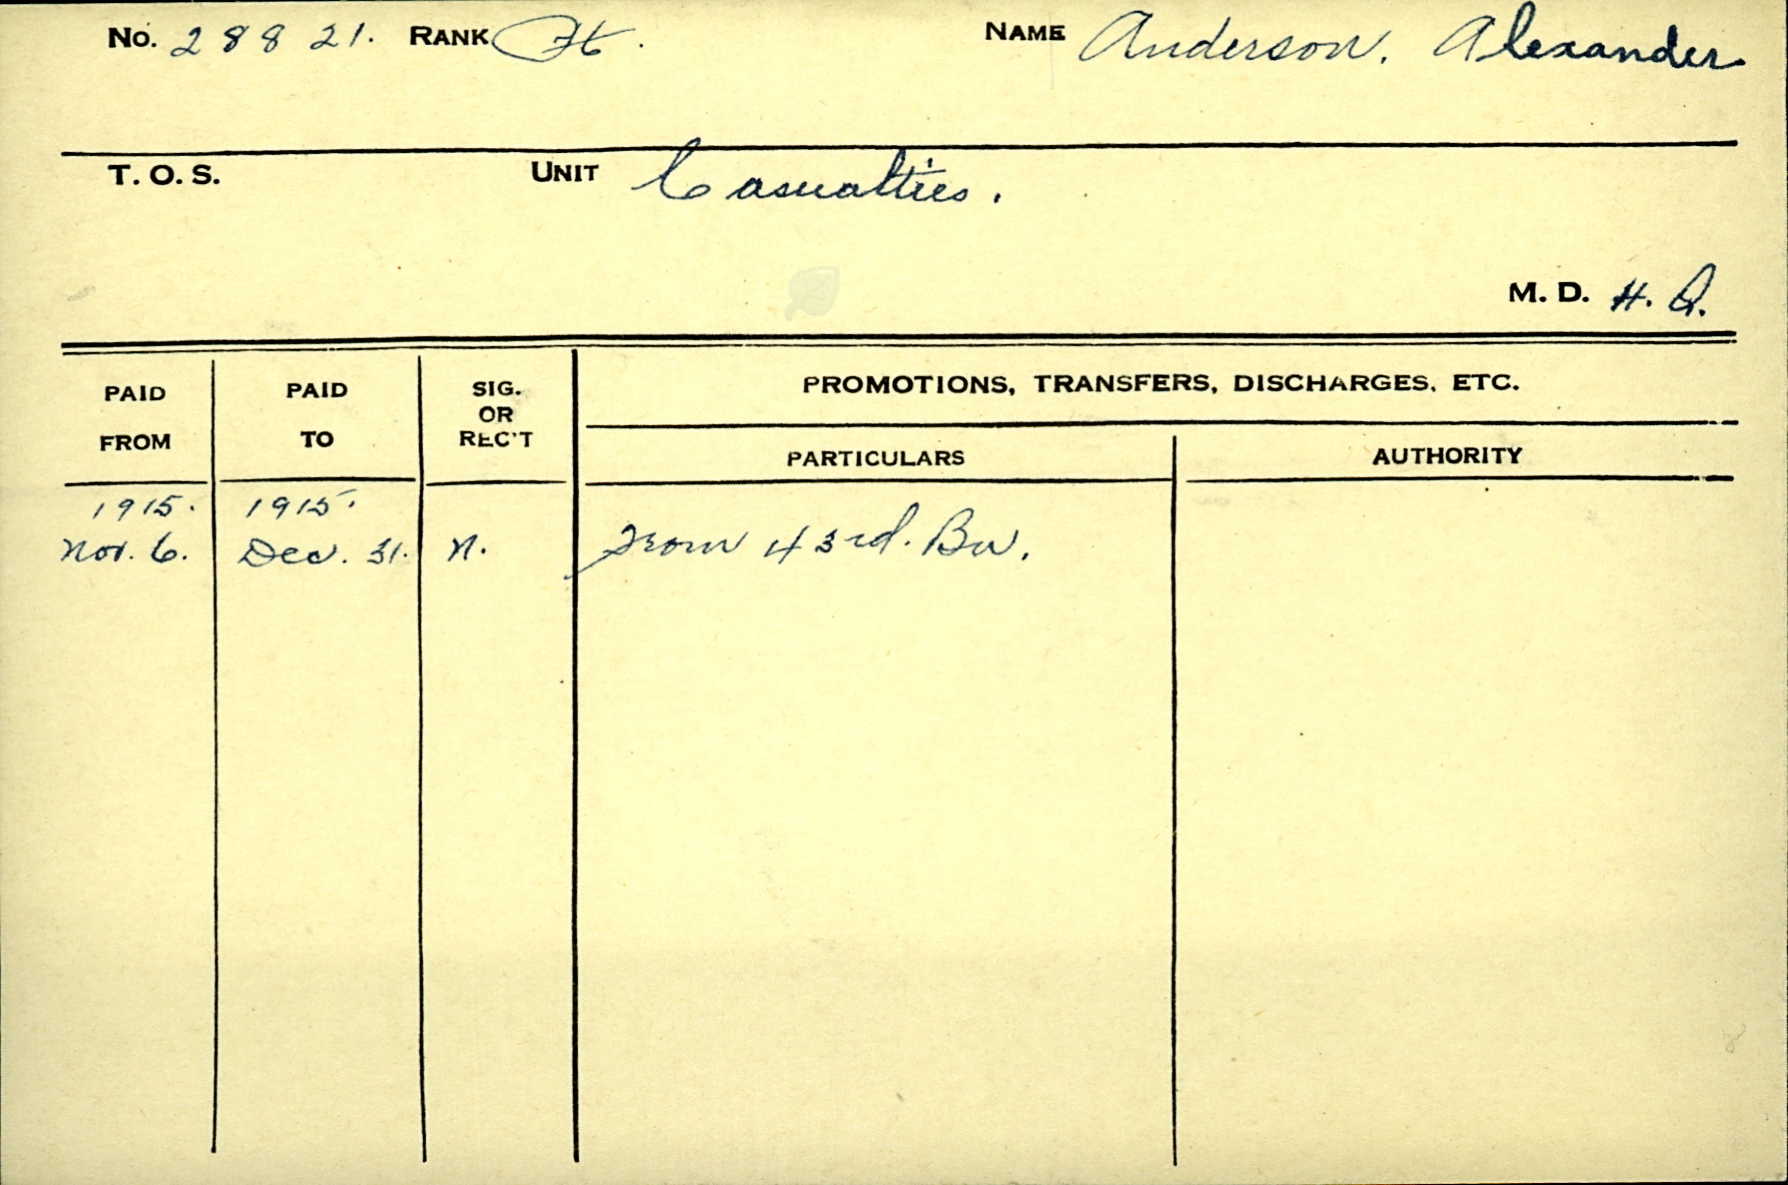 No. 28821. RANK Pte. NAME Anderson. Alexander
T. O. S. UNIT Casualties.
M. D. H. Q.
PAID FROM PAID TO SIG. OR REC'T PROMOTIONS, TRANSFERS, DISCHARGES, ETC.
PARTICULARS AUTHORITY
1915. 1915.
Nov. 6. Dec. 31. N. From 43rd. Bn.